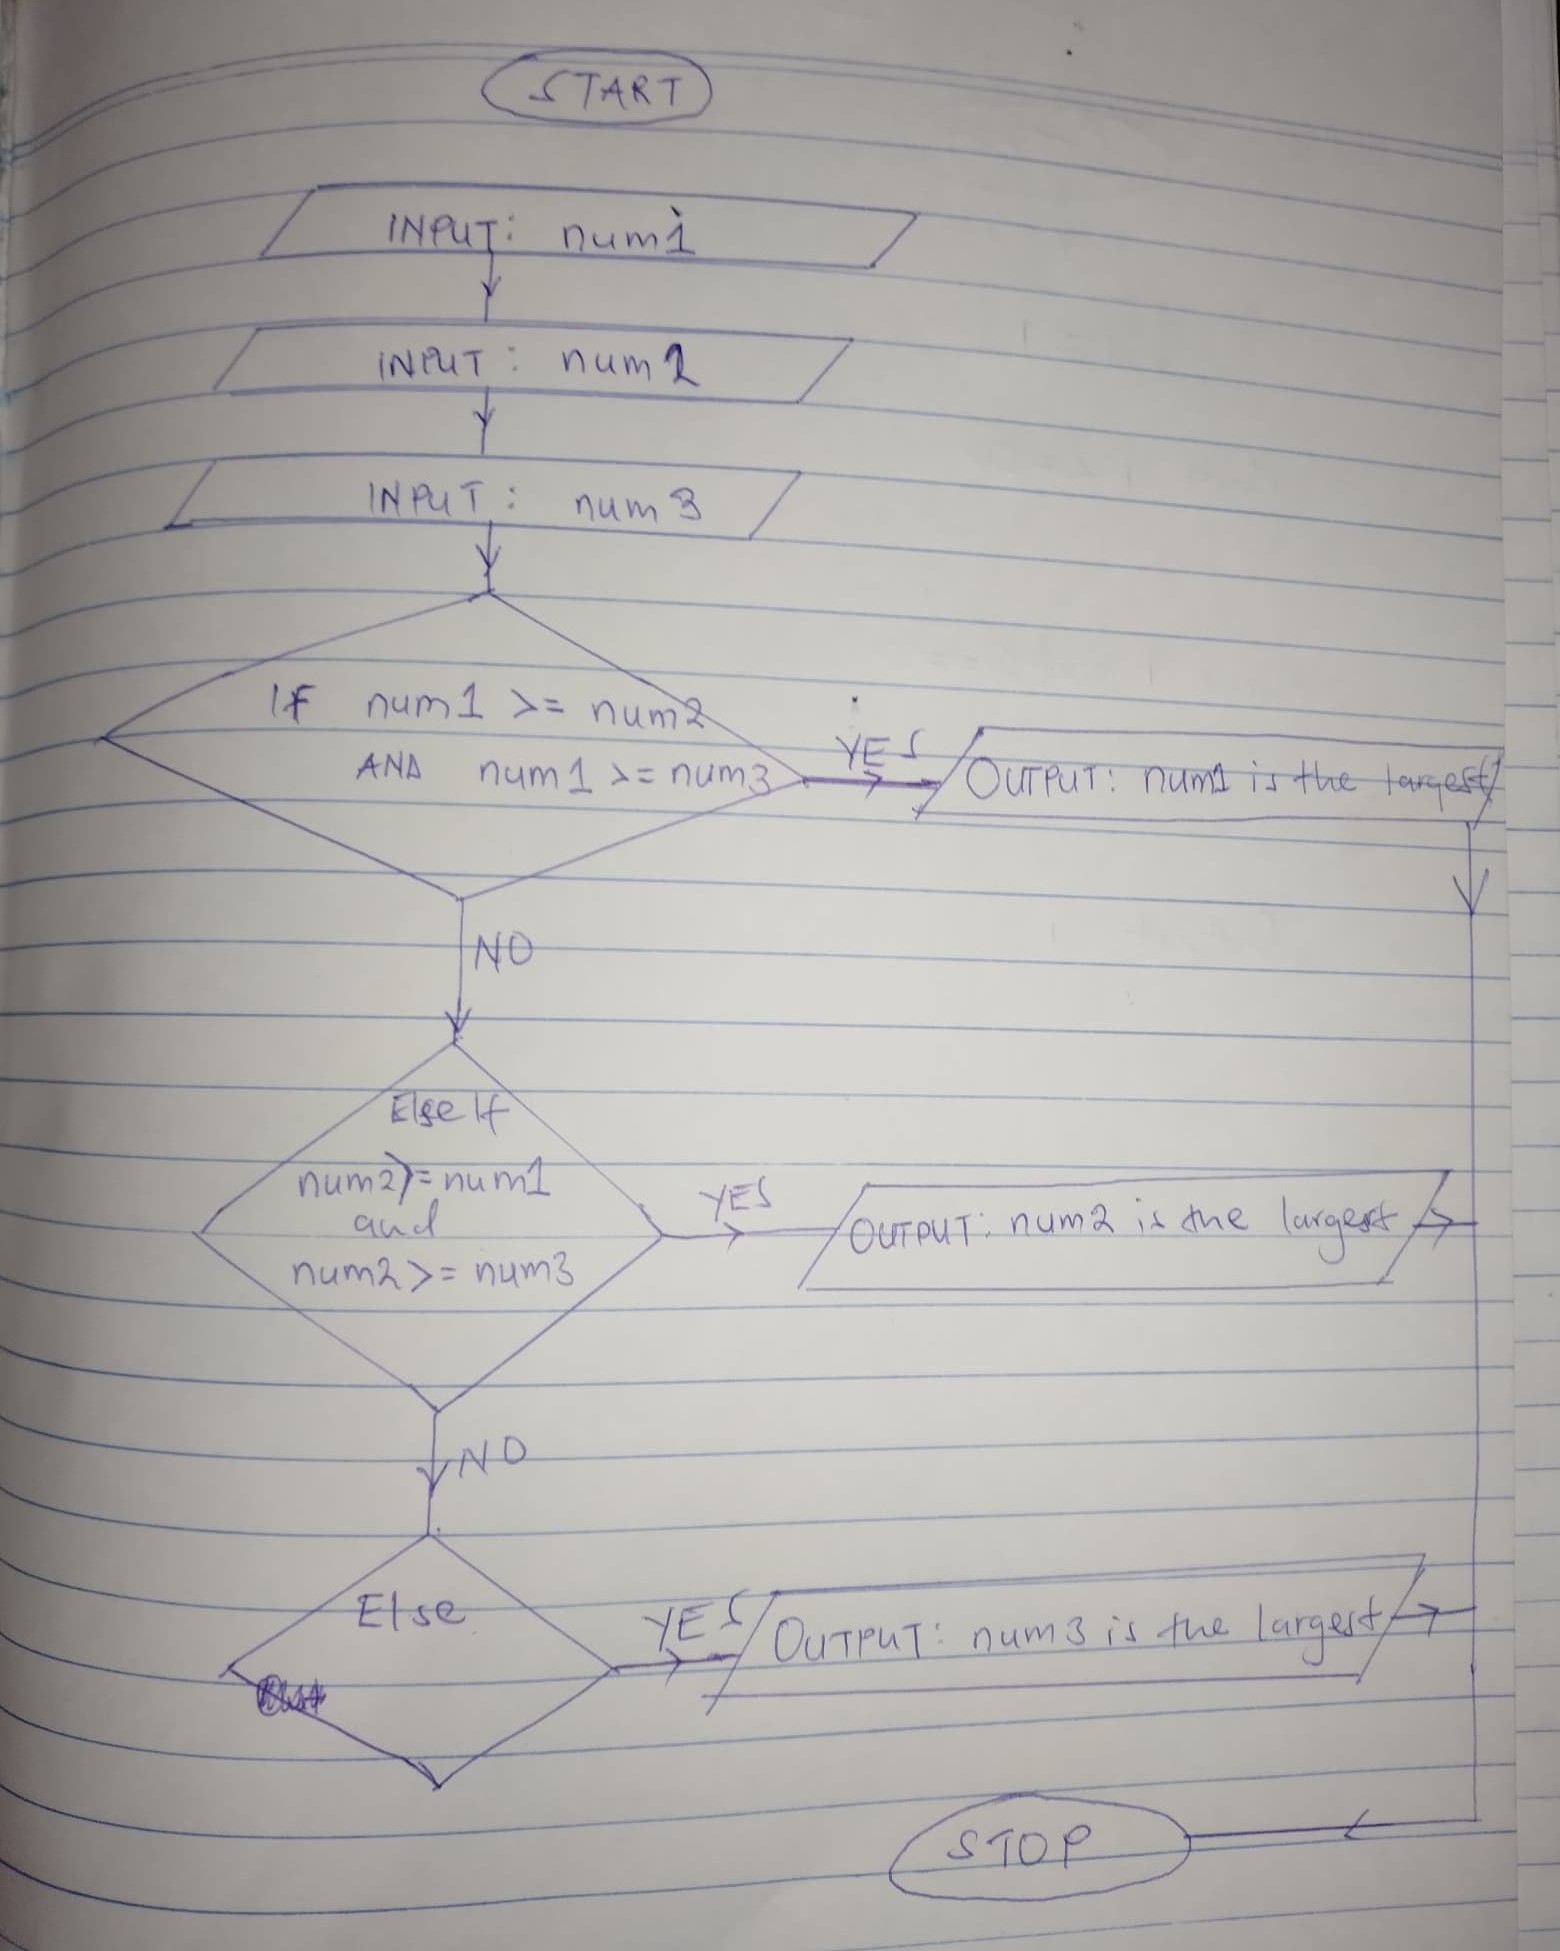 START
INPUT: num1
INPUT: num2
INPUT: num3
If num1 >= num2
AND num1 >= num3
YES
OUTPUT: num1 is the largest
NO
Else If
num2 >= num1
and
num2 >= num3
YES
OUTPUT: num2 is the largest
NO
Else
YES
OUTPUT: num3 is the largest
STOP